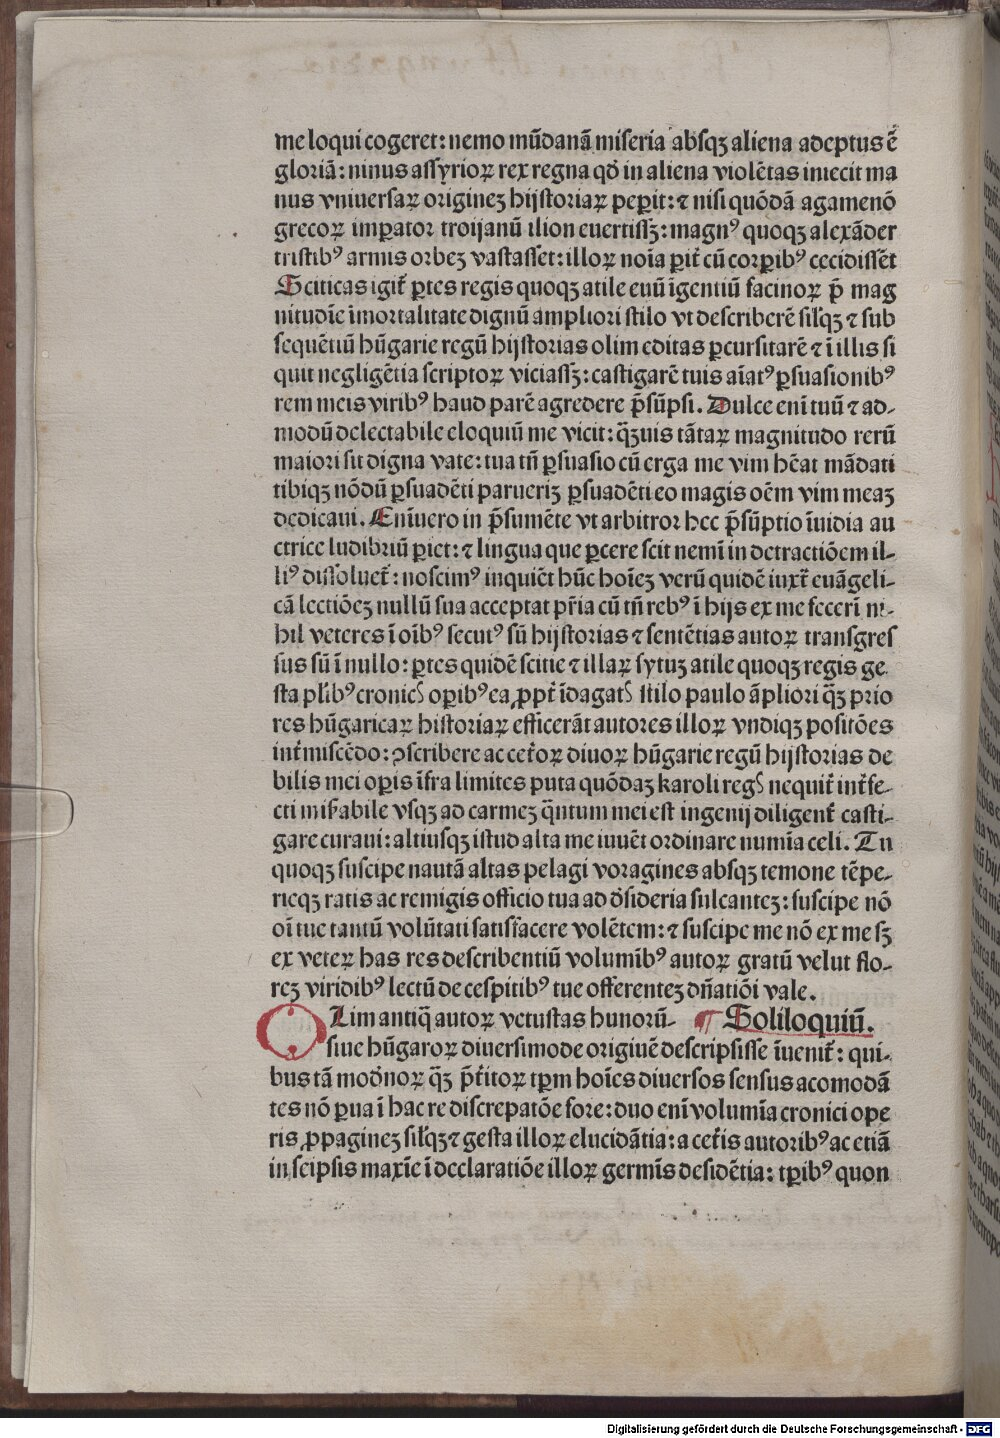 me loqui cogeret: nemo mũdanã miseria absqꝫ aliena adeptus ẽ
gloriã: ninus assyrioꝝ rex regna qđ in aliena violẽtas iniecit ma
nus vniuersaꝝ origineꝫ hijstoriaꝝ peꝑit: ⁊ nisi quõdã agamenõ
grecoꝝ imꝑator troijanũ ilion euertissꝫ: magnꝰ quoqꝫ alexãder
tristibꝰ armis orbeꝫ vastasset: illoꝝ noĩa ꝑit̃ cũ corꝑibꝰ cecidissẽt
Sciticas igit̃ ꝑtes regis quoqꝫ atile euũ ĩgentiũ facinoꝝ p̃ mag
nitudĩe ĩmortalitate dignũ ampliori stilo vt describerẽ sil̃qꝫ ⁊ sub
sequẽtiũ hũgarie regũ hijstorias olim editas ꝑcursitarẽ ⁊ ĩ illis si
quit negligẽtia scriptoꝝ viciassꝫ: castigarẽ tuis aĩatꝰ ꝑsuasionibꝰ
rem meis viribꝰ haud parẽ agredere p̃sũpsi. Dulce enĩ tuũ ⁊ ad-
modũ delectabile eloquiũ me vicit: q̃ꝫuis tãtaꝝ magnitudo rerũ
maiori sit digna vate: tua tñ ꝑsuasio cũ erga me vim hẽat mãdati
tibiqꝫ nõdũ ꝑsuadẽti parueriꝫ ꝑsuadẽti eo magis oẽm vim meaꝫ
dedicaui. Enĩuero in p̃sumẽte vt arbitror hec p̃sũptio ĩuidia au
ctrice ludibriũ ꝑiet: ⁊ lingua que ꝑcere scit nemĩ in detractiõem il-
liꝰ dissoluet̃: noscimꝰ inquiẽt hũc hoĩeꝫ verũ quidẽ iuxt̃ euãgeli-
cã lectiõeꝫ nullũ sua acceptat pr̃ia cũ tñ rebꝰ ĩ hijs ex me fecerĩ ni-
hil veteres ĩ oĩbꝰ secutꝰ sũ hijstorias ⁊ sentẽtias autoꝝ transgres
sus sũ ĩ nullo: ꝑtes quidẽ scitue ⁊ illaꝝ sytuꝫ atile quoqꝫ regis ge
sta pl̃ibꝰ cronicꝭ oꝑibꝰ ea ꝓpt̃ ĩdagatꝭ stilo paulo ãpliori q̃ꝫ prio
res hũgaricaꝝ historiaꝝ efficerãt autores illoꝝ vndiqꝫ positões
int̃miscẽdo: ꝯscribere ac cet̃oꝝ diuoꝝ hũgarie regũ hijstorias de
bilis mei oꝑis ĩfra limites puta quõdaꝫ karoli regꝭ nequit̃ int̃fe-
cti mis̃abile vsqꝫ ad carmeꝫ q̃ntum mei est ingenij diligent̃ casti-
gare curaui: altiusqꝫ istud alta me iuuẽt ordinare numĩa celi. Tu
quoqꝫ suscipe nautã altas pelagi voragines absqꝫ temone tẽpe-
rieqꝫ ratis ac remigis officio tua ad d̃sideria sulcanteꝫ: suscipe nõ
oĩ tue tantũ volũtati satisfacere volẽtem: ⁊ suscipe me nõ ex me sꝫ
ex veteꝝ has res describentiũ volumĩbꝰ autoꝝ gratũ velut flo-
reꝫ viridibꝰ lectũ de cespitibꝰ tue offerenteꝫ dñatiõi vale.
OLim antiq̃ autoꝝ vetustas hunorũ- ¶ Soliloquiũ.
siue hũgaroꝝ diuersimode originẽ descripsisse ĩuenit̃: qui-
bus tã mod̃noꝝ q̃ꝫ p̃t̃itoꝝ tꝑm hoĩes diuersos sensus acomodã
tes nõ ꝑua ĩ hac re discrepatõe fore: duo enĩ volumĩa cronici ope
ris ꝓpagineꝫ sil̃qꝫ ⁊ gesta illoꝝ elucidãtia: a cet̃is autoribꝰ ac etiã
in seipsis maxĩe ĩ declaratiõe illoꝝ germĩs desidẽtia: tꝑibꝰ quon
Digitalisierung gefördert durch die Deutsche Forschungsgemeinschaft - DFG